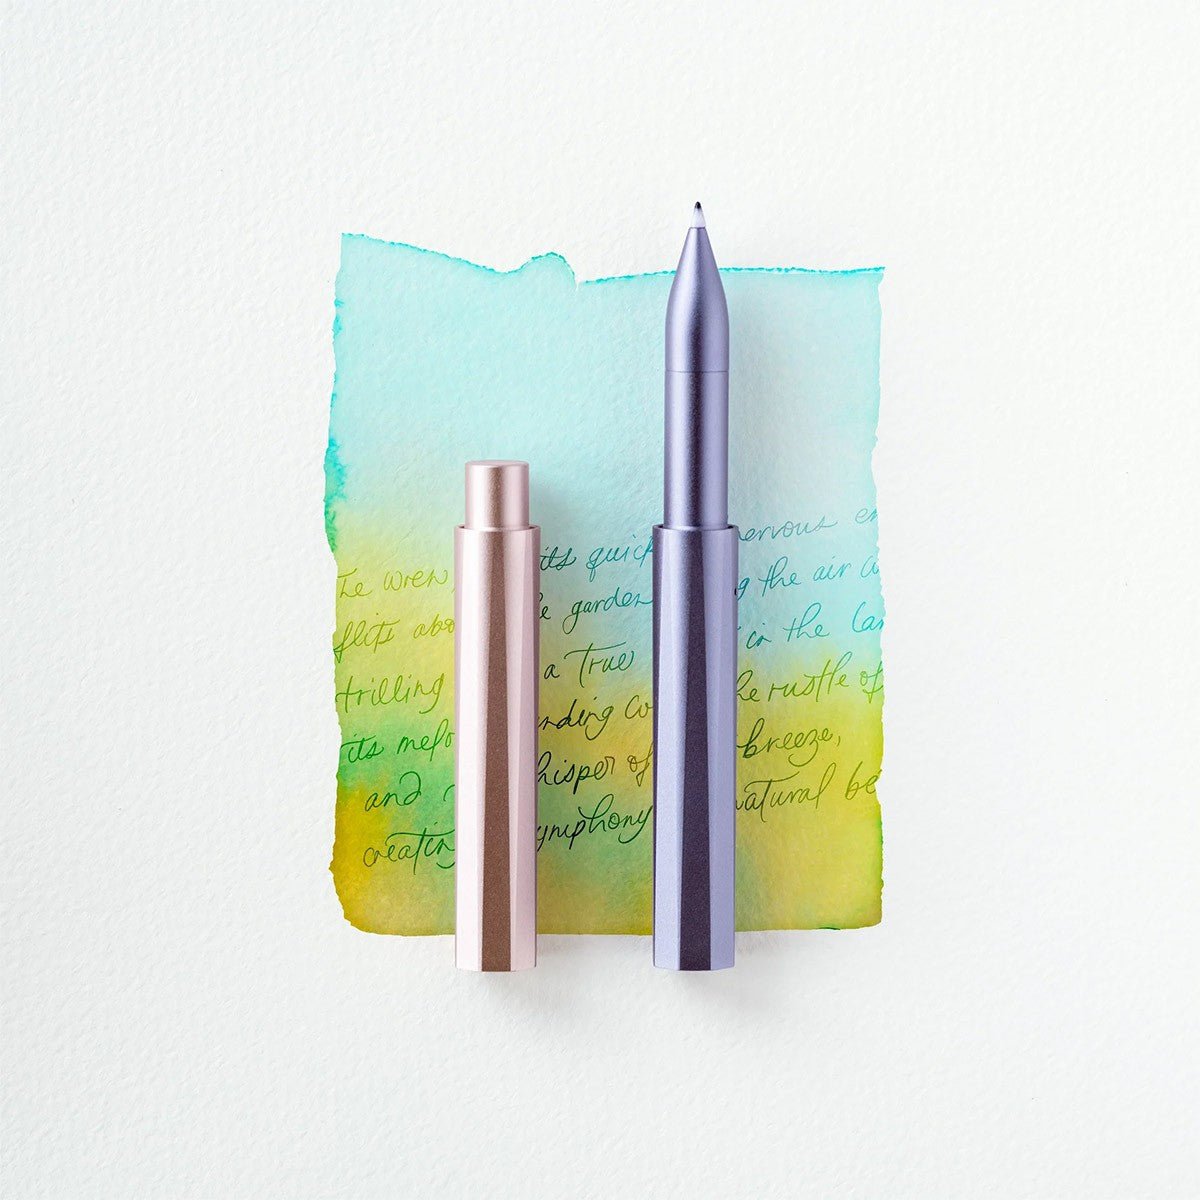 The wren, its quick nervous en
flits abo e garden g the air a
trilling a True in the lar
its melo nding co he rustle of
and hisper of breeze,
creatin ymphony natural be